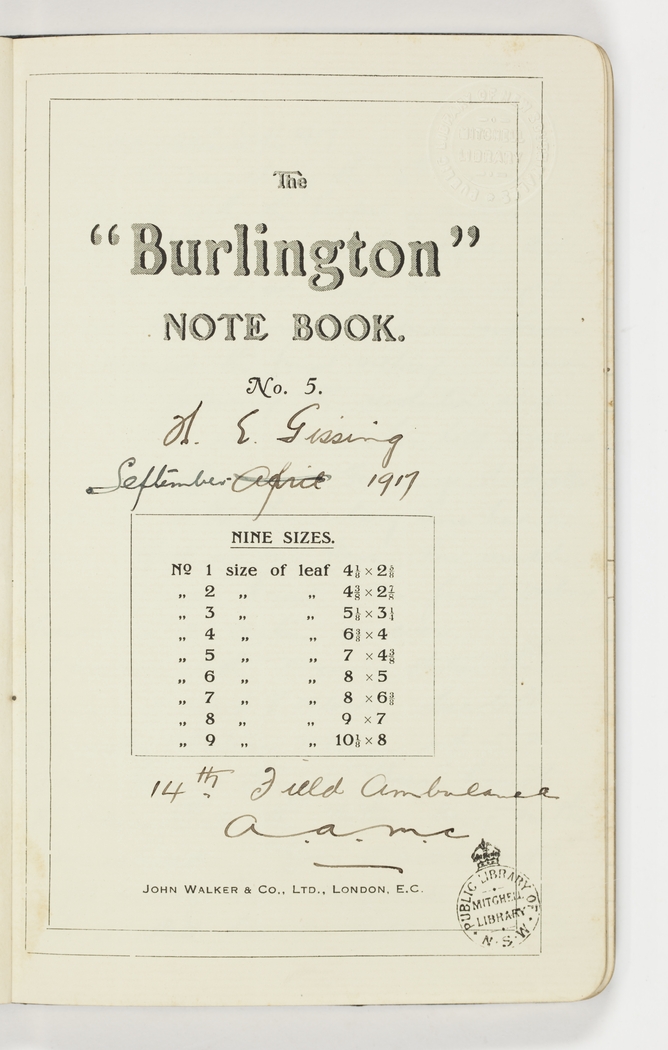 The
“Burlington”
NOTE BOOK.
No. 5.
H. E. Gissing
September April 1917
NINE SIZES.
No 1 size of leaf 4 1/8 × 2 5/8
„ 2 „ „ 4 3/8 × 2 7/8
„ 3 „ „ 5 1/8 × 3 1/4
„ 4 „ „ 6 3/8 × 4
„ 5 „ „ 7 × 4 3/8
„ 6 „ „ 8 × 5
„ 7 „ „ 8 × 6 3/8
„ 8 „ „ 9 × 7
„ 9 „ „ 10 1/8 × 8
14th Field Ambulance
a.a.m.c
JOHN WALKER & CO., LTD., LONDON, E.C.
PUBLIC LIBRARY OF N.S.W.
MITCHELL
LIBRARY